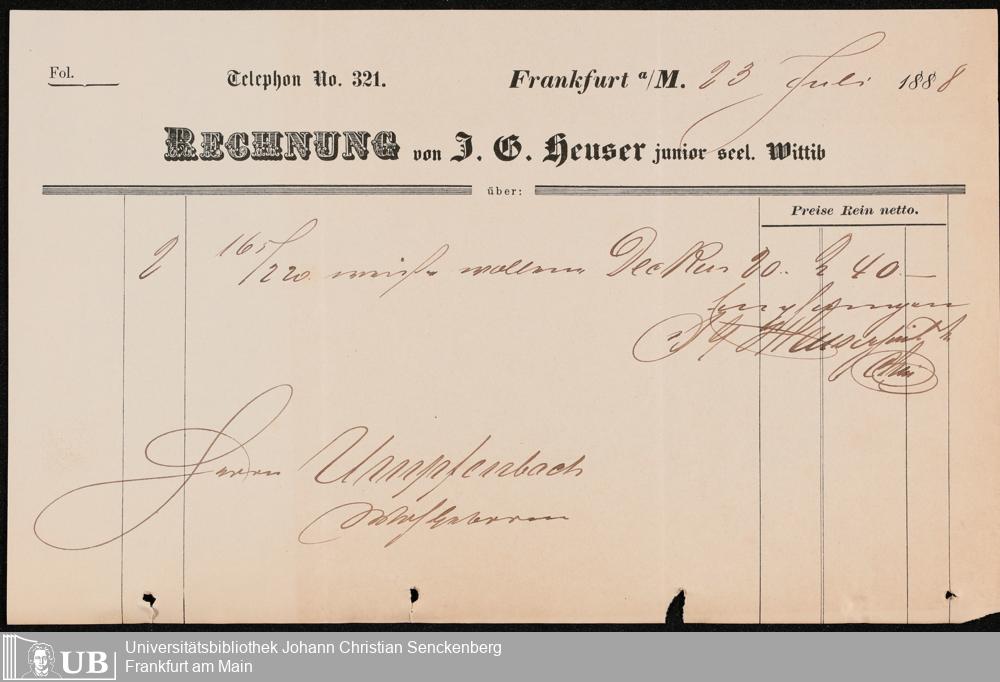 Fol.
Telephon No. 321.
Frankfurt a/M. 23 Juli 1888
RECHNUNG von J. G. Heuser junior seel. Wittib
über:
Preise Rein netto.
2 165/220 weiße wollene Decken 20.. 2 40.—
empfangen
J G Heuser
Herrn Umpfenbach
Wohlgeboren
UB
Universitätsbibliothek Johann Christian Senckenberg
Frankfurt am Main